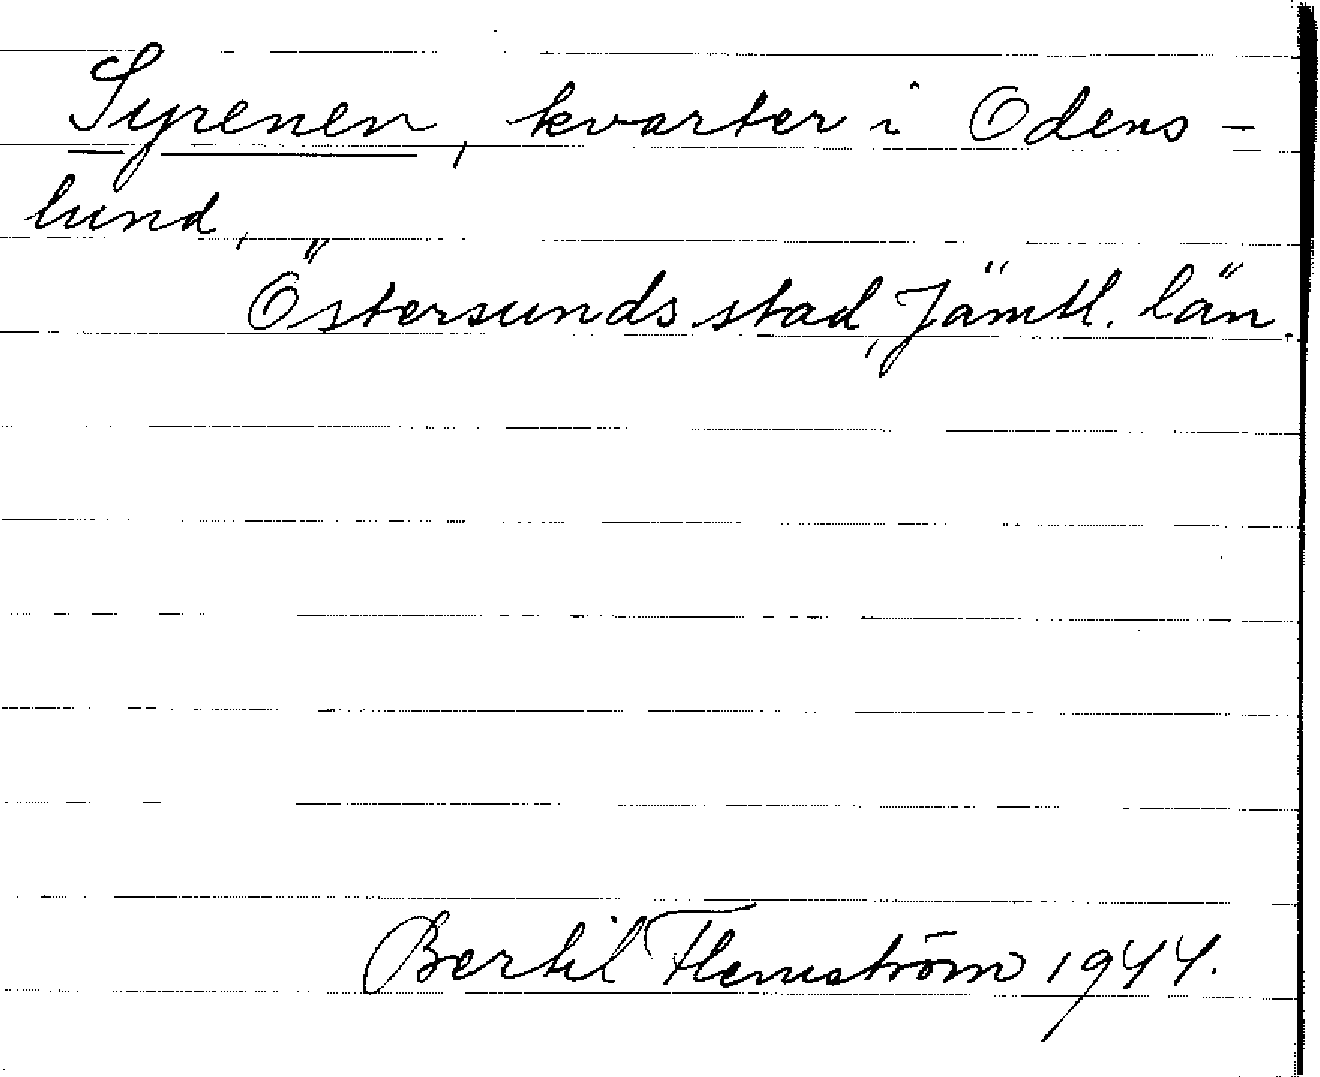 Syrenen, kvarter i Odens-
lund,
Östersunds stad, Jämtl. län.
Bertil Flemström 1944.